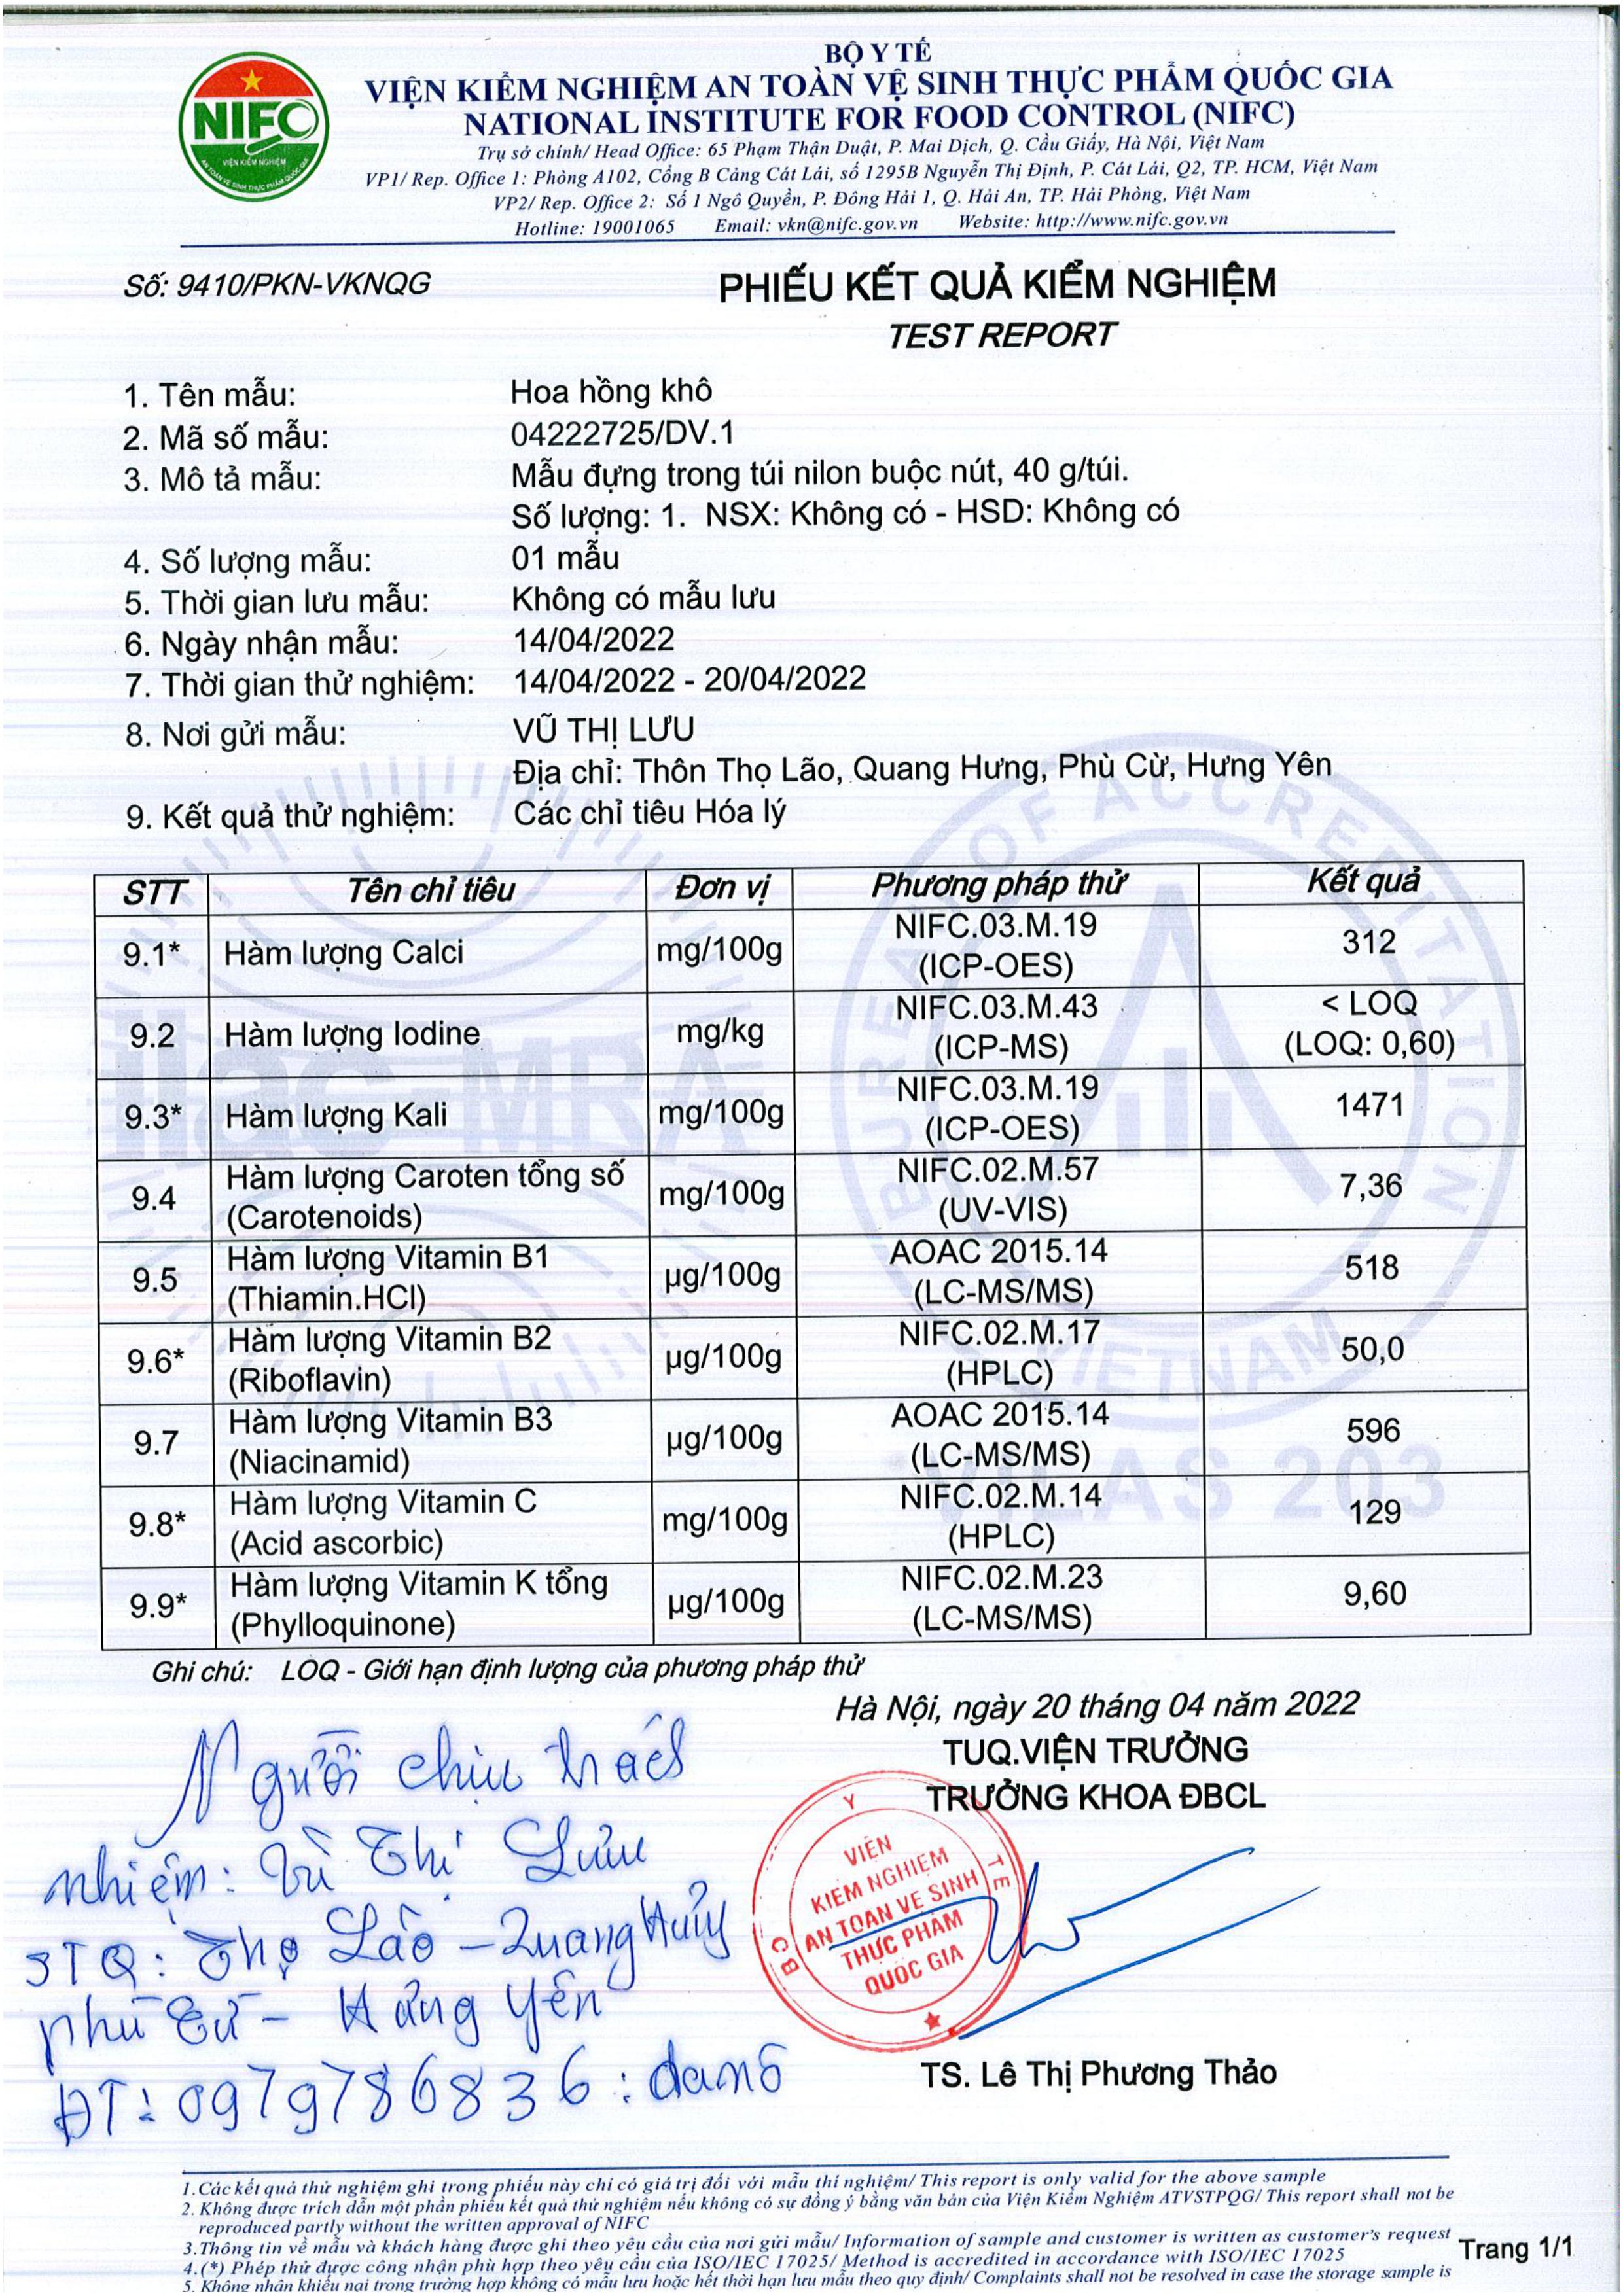 BỘ Y TẾ
VIỆN KIỂM NGHIỆM AN TOÀN VỆ SINH THỰC PHẨM QUỐC GIA
NATIONAL INSTITUTE FOR FOOD CONTROL (NIFC)
Trụ sở chính/ Head Office: 65 Phạm Thận Duật, P. Mai Dịch, Q. Cầu Giấy, Hà Nội, Việt Nam
VP1/ Rep. Office 1: Phòng A102, Cổng B Cảng Cát Lái, số 1295B Nguyễn Thị Định, P. Cát Lái, Q2, TP. HCM, Việt Nam
VP2/ Rep. Office 2: Số 1 Ngô Quyền, P. Đông Hải 1, Q. Hải An, TP. Hải Phòng, Việt Nam
Hotline: 19001065 Email: vkn@nifc.gov.vn Website: http://www.nifc.gov.vn
NIFC
VIỆN KIỂM NGHIỆM
AN TOÀN VỆ SINH THỰC PHẨM QUỐC GIA
Số: 9410/PKN-VKNQG
PHIẾU KẾT QUẢ KIỂM NGHIỆM
TEST REPORT
1. Tên mẫu: Hoa hồng khô
2. Mã số mẫu: 04222725/DV.1
3. Mô tả mẫu: Mẫu đựng trong túi nilon buộc nút, 40 g/túi.
Số lượng: 1. NSX: Không có - HSD: Không có
4. Số lượng mẫu: 01 mẫu
5. Thời gian lưu mẫu: Không có mẫu lưu
6. Ngày nhận mẫu: 14/04/2022
7. Thời gian thử nghiệm: 14/04/2022 - 20/04/2022
8. Nơi gửi mẫu: VŨ THỊ LƯU
Địa chỉ: Thôn Thọ Lão, Quang Hưng, Phù Cừ, Hưng Yên
9. Kết quả thử nghiệm: Các chỉ tiêu Hóa lý
STT Tên chỉ tiêu Đơn vị Phương pháp thử Kết quả
9.1* Hàm lượng Calci mg/100g NIFC.03.M.19 (ICP-OES) 312
9.2 Hàm lượng Iodine mg/kg NIFC.03.M.43 (ICP-MS) < LOQ (LOQ: 0,60)
9.3* Hàm lượng Kali mg/100g NIFC.03.M.19 (ICP-OES) 1471
9.4 Hàm lượng Caroten tổng số (Carotenoids) mg/100g NIFC.02.M.57 (UV-VIS) 7,36
9.5 Hàm lượng Vitamin B1 (Thiamin.HCl) µg/100g AOAC 2015.14 (LC-MS/MS) 518
9.6* Hàm lượng Vitamin B2 (Riboflavin) µg/100g NIFC.02.M.17 (HPLC) 50,0
9.7 Hàm lượng Vitamin B3 (Niacinamid) µg/100g AOAC 2015.14 (LC-MS/MS) 596
9.8* Hàm lượng Vitamin C (Acid ascorbic) mg/100g NIFC.02.M.14 (HPLC) 129
9.9* Hàm lượng Vitamin K tổng (Phylloquinone) µg/100g NIFC.02.M.23 (LC-MS/MS) 9,60
ilac-MRA
BUREAU OF ACCREDITATION
VIETNAM
VILAS 203
Ghi chú: LOQ - Giới hạn định lượng của phương pháp thử
Hà Nội, ngày 20 tháng 04 năm 2022
TUQ.VIỆN TRƯỞNG
TRƯỞNG KHOA ĐBCL
VIỆN
KIỂM NGHIỆM
AN TOÀN VỆ SINH
THỰC PHẨM
QUỐC GIA
TS. Lê Thị Phương Thảo
Người chịu trách
nhiệm: Vũ Thị Lưu
Thọ Lão - Quang Hưng
Phù Cừ - Hưng Yên
ĐT: 0979786836
1. Các kết quả thử nghiệm ghi trong phiếu này chỉ có giá trị đối với mẫu thí nghiệm/ This report is only valid for the above sample
2. Không được trích dẫn một phần phiếu kết quả thử nghiệm nếu không có sự đồng ý bằng văn bản của Viện Kiểm Nghiệm ATVSTPQG/ This report shall not be
reproduced partly without the written approval of NIFC
3. Thông tin về mẫu và khách hàng được ghi theo yêu cầu của nơi gửi mẫu/ Information of sample and customer is written as customer's request
4. (*) Phép thử được công nhận phù hợp theo yêu cầu của ISO/IEC 17025/ Method is accredited in accordance with ISO/IEC 17025
5. Không nhận khiếu nại trong trường hợp không có mẫu lưu hoặc hết thời hạn lưu mẫu theo quy định/ Complaints shall not be resolved in case the storage sample is
Trang 1/1